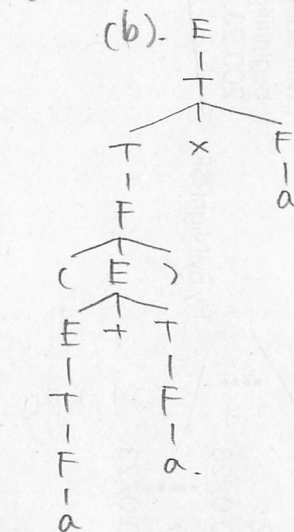 (b). E
T
T × F
F a
( E )
E + T
T F
F a.
a